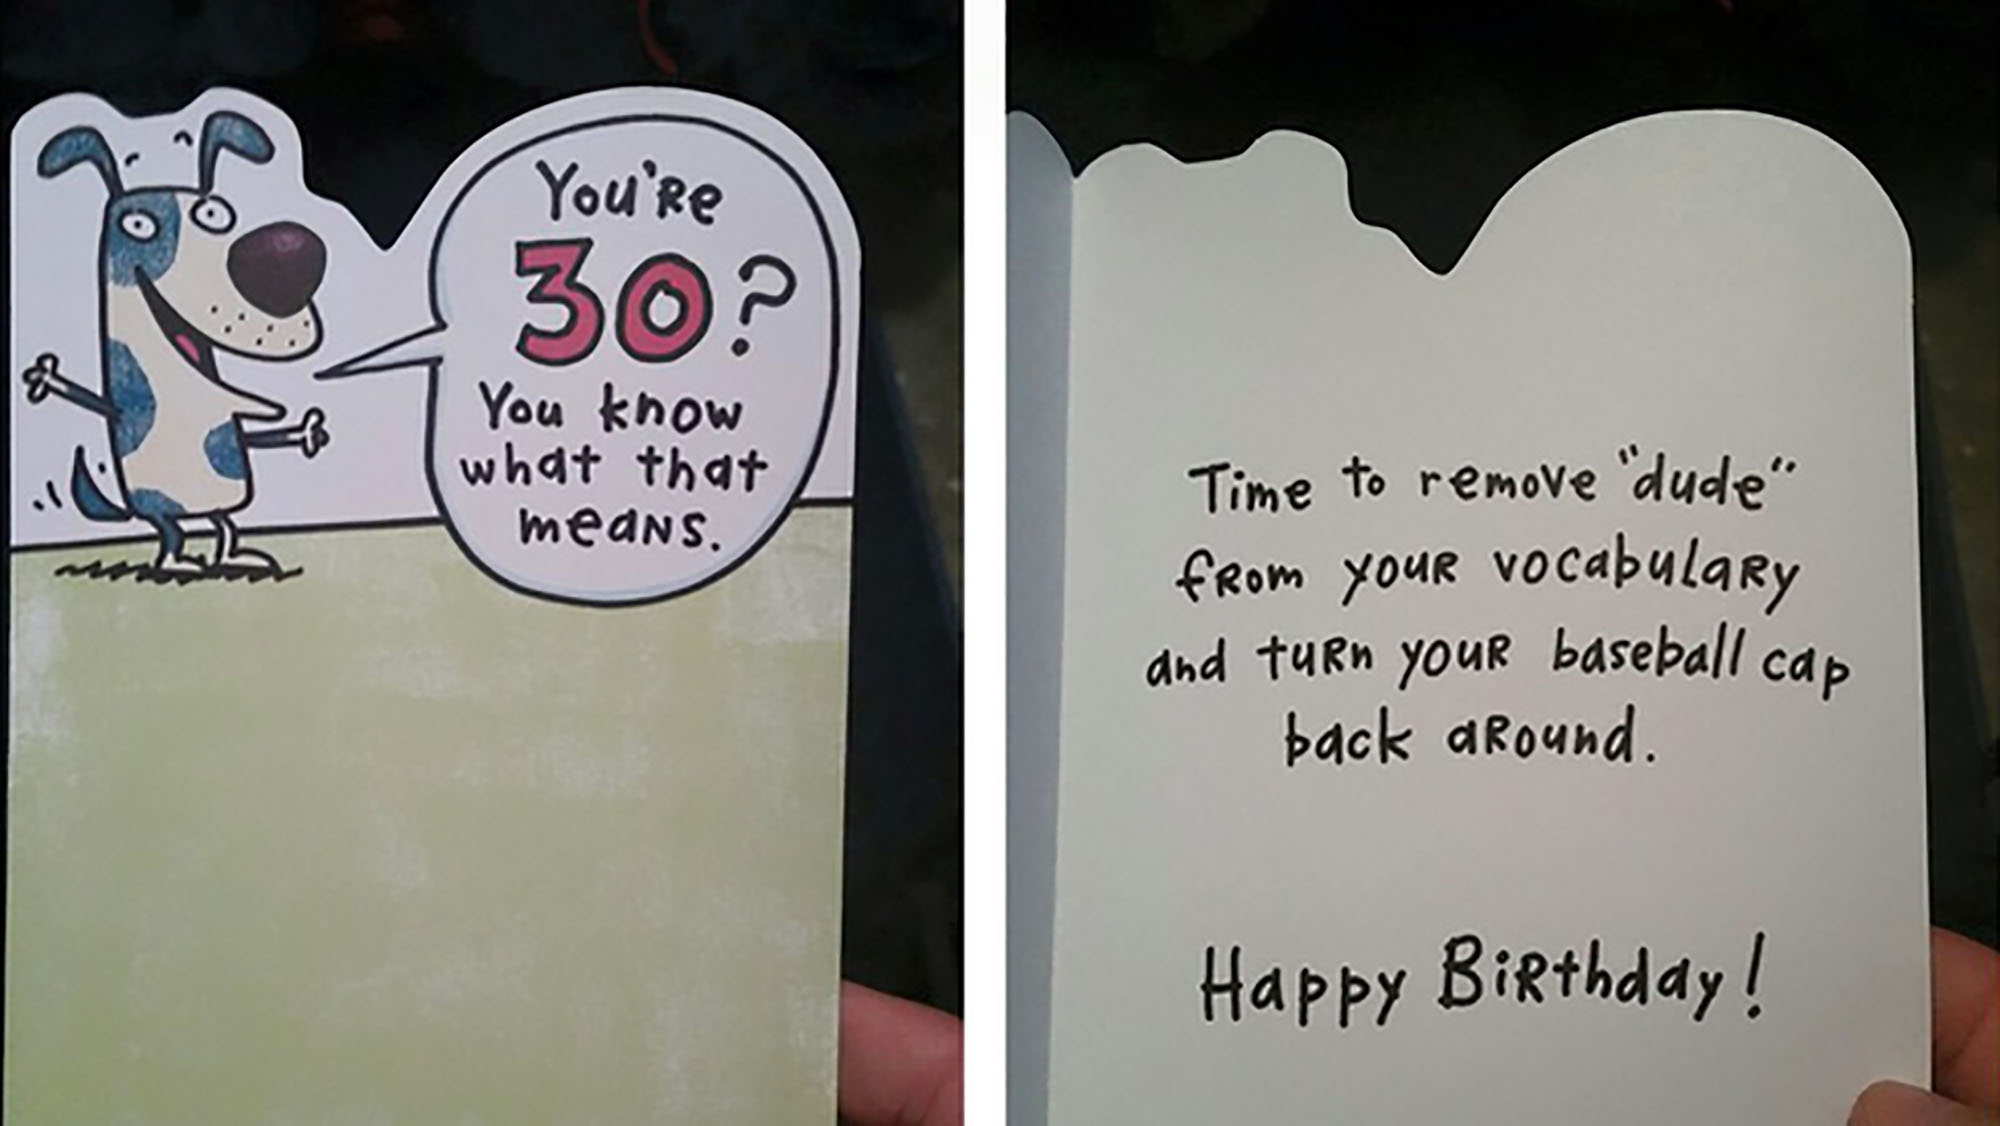 You're
30?
You know
what that
means.
Time to remove "dude"
from your vocabulary
and turn your baseball cap
back around.
Happy Birthday!